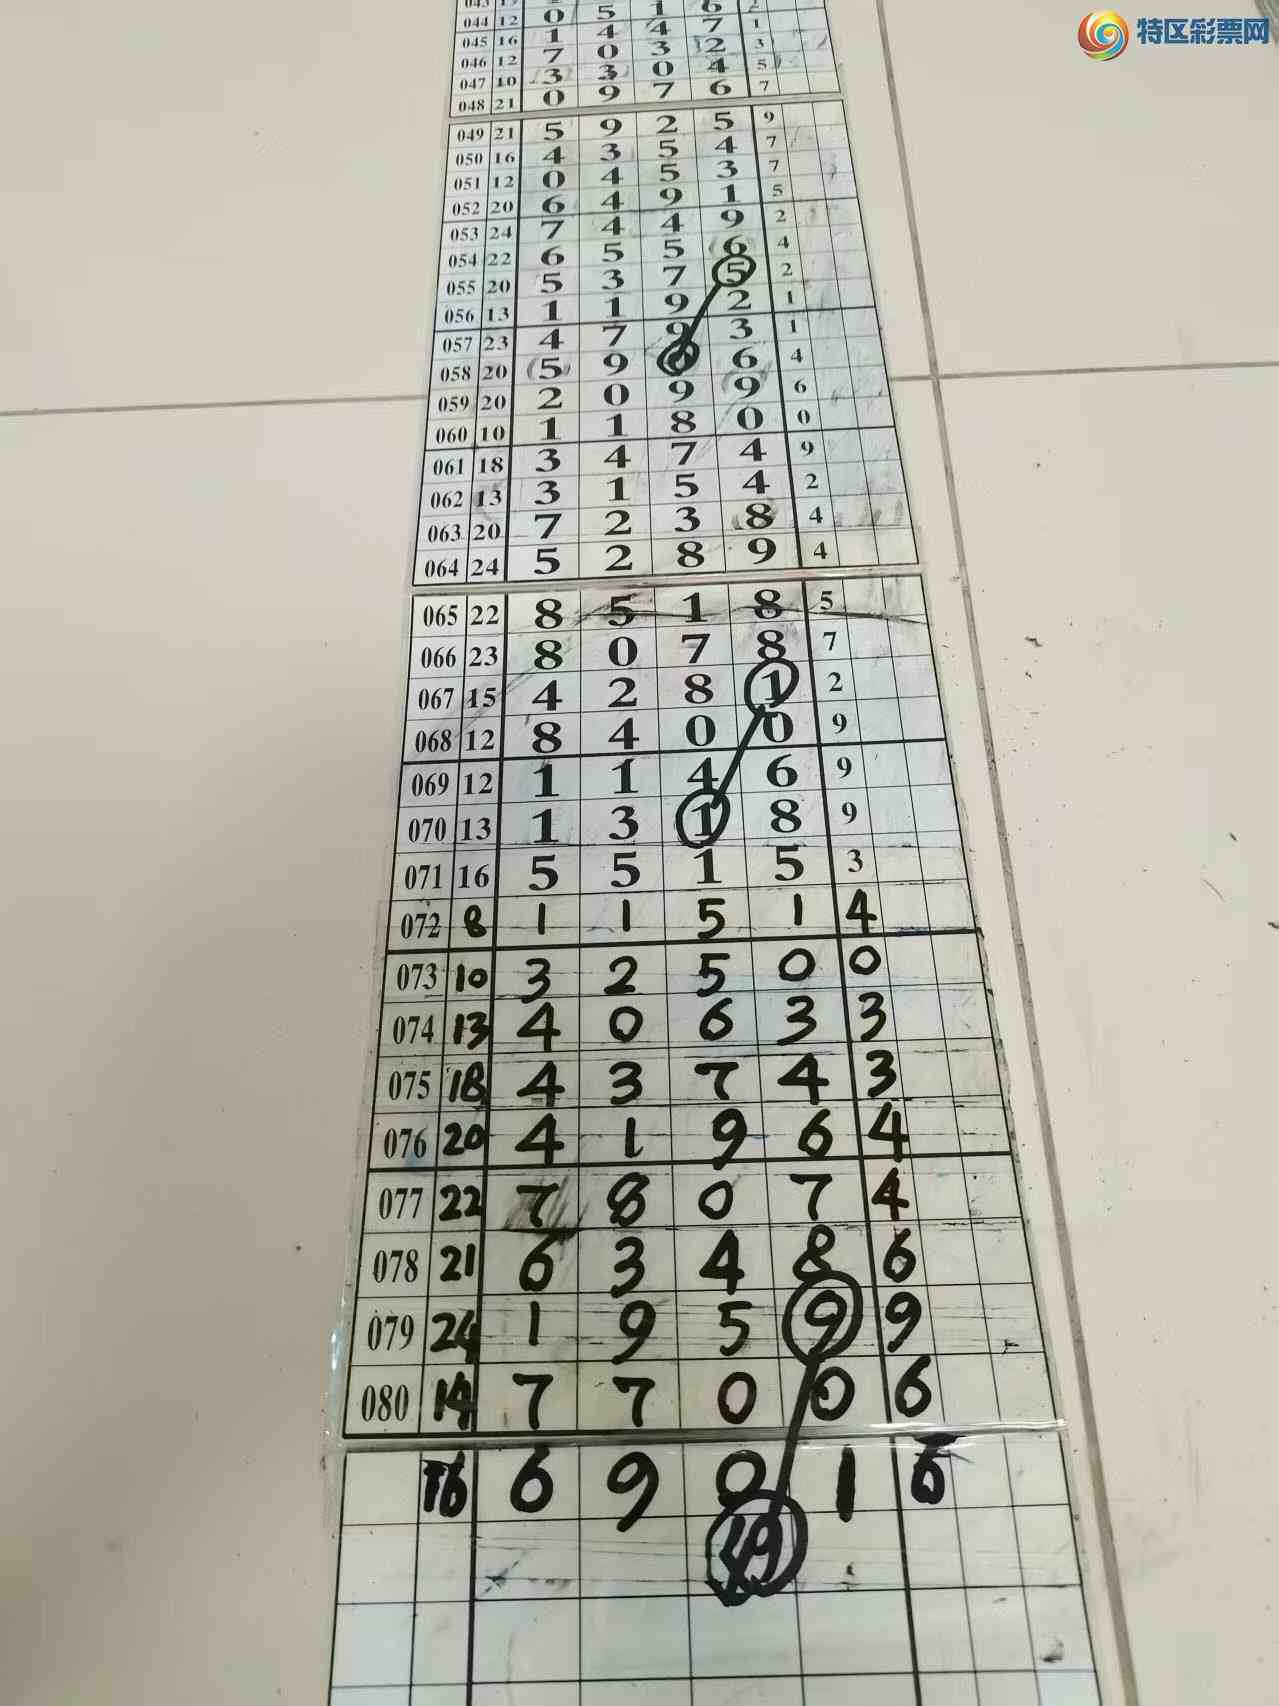 特区彩票网
044 12 0 5 1 6
045 16 1 4 4 7 1
046 12 7 0 3 2 3
047 10 3 3 0 4 5
048 21 0 9 7 6 7
049 21 5 9 2 5 9
050 16 4 3 5 4 7
051 12 0 4 5 3 7
052 20 6 4 9 1 5
053 24 7 4 4 9 2
054 22 6 5 5 6 4
055 20 5 3 7 5 2
056 13 1 1 9 2 1
057 23 4 7 9 3 1
058 20 5 9 6 4
059 20 2 0 9 9 6
060 10 1 1 8 0 0
061 18 3 4 7 4 9
062 13 3 1 5 4 2
063 20 7 2 3 8 4
064 24 5 2 8 9 4
065 22 8 5 1 8 5
066 23 8 0 7 8 7
067 15 4 2 8 1 2
068 12 8 4 0 0 9
069 12 1 1 4 6 9
070 13 1 3 1 8 9
071 16 5 5 1 5 3
072 8 1 1 5 1 4
073 10 3 2 5 0 0
074 13 4 0 6 3 3
075 18 4 3 7 4 3
076 20 4 1 9 6 4
077 22 7 8 0 7 4
078 21 6 3 4 8 6
079 24 1 9 5 9 9
080 14 7 7 0 0 6
16 6 9 0 1 6
49